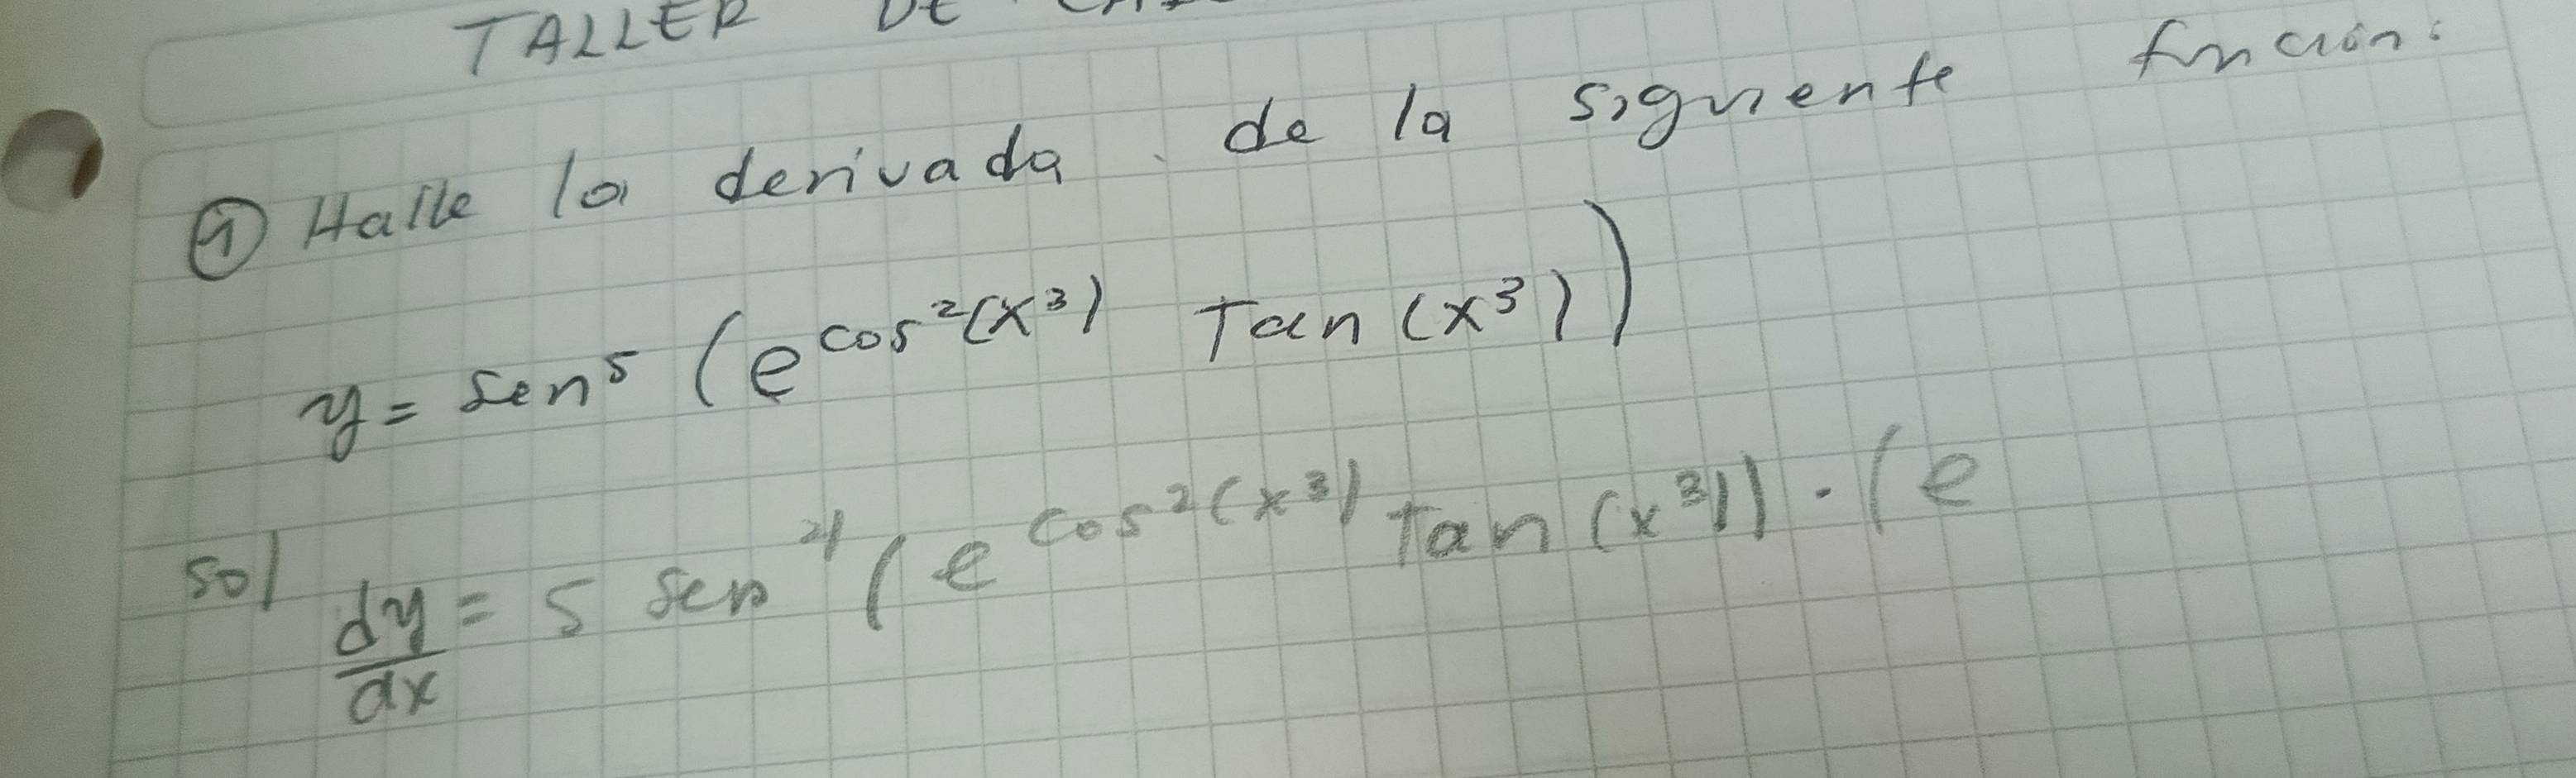 TALLER DE
① Halle la derivada de la siguiente función:
y = sen⁵ (e^cos²(x³) Tan (x³))
sol dy/dx = 5 sen⁴ (e^cos²(x³) Tan (x³)) · (e